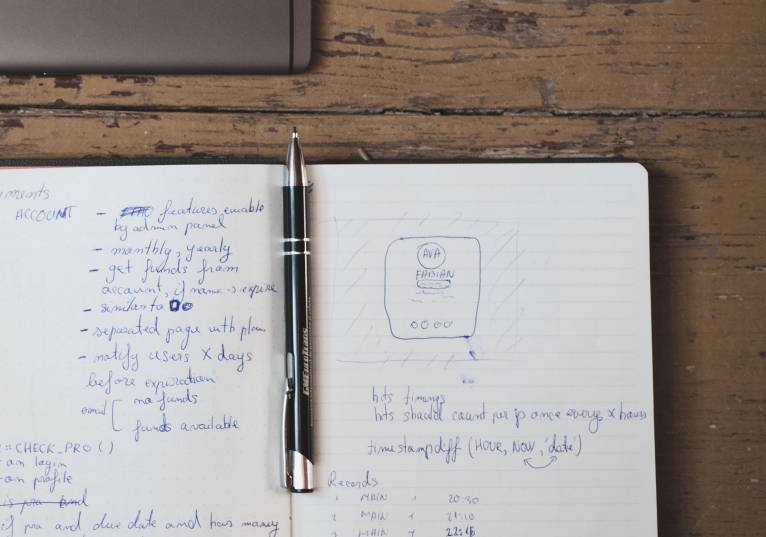 ACCOUNT - features enable
by admin panel
- monthly, yearly
- get funds from
account, if name → expire
- similar to DO
- separated page with plan
- notify users X days
before expiration
email [ no funds
funds available
= CHECK_PRO ()
- on login
- on profile
if pro and due date and has money
AVA
FABIAN
hits timings
hits should count per ip once every x hours
timestampdiff (HOUR, NOW, 'date')
Records
MAIN 20:30
MAIN 21:10
MAIN 22:15